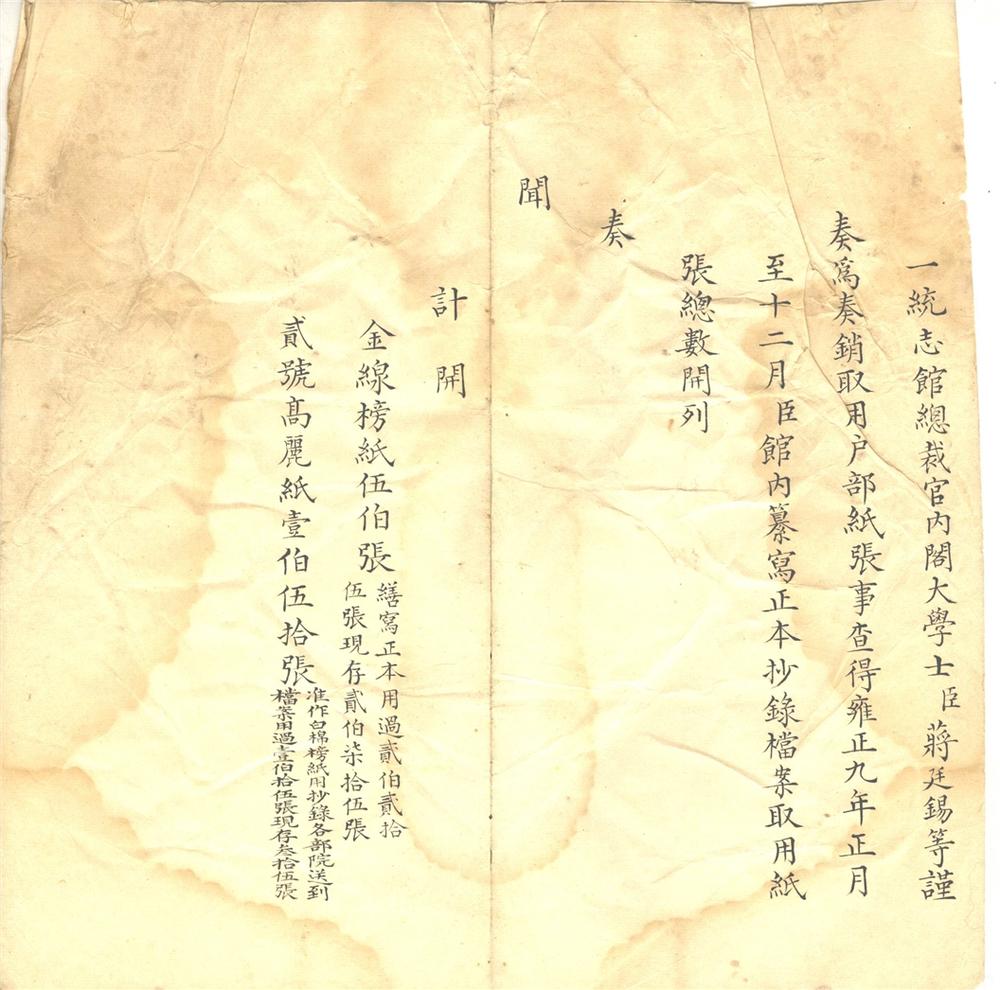 一統志館總裁官內閣大學士臣蔣廷錫等謹
奏爲奏銷取用户部紙張事查得雍正九年正月
至十二月臣館内纂寫正本抄錄檔案取用紙
張總數開列
奏
聞
計開
金線榜紙伍伯張
繕寫正本用過貳伯貳拾
伍張現存貳伯柒拾伍張
貳號髙麗紙壹伯伍拾張
准作白棉榜紙用抄錄各部院送到
檔案用過壹伯拾伍張現存叁拾伍張